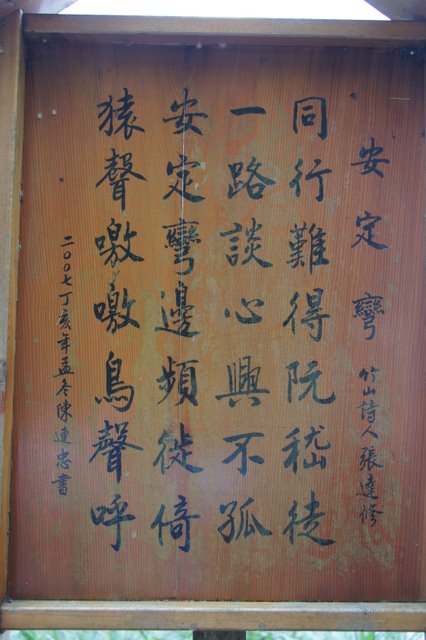 安定彎 竹山詩人張達修
同行難得阮嵇徒
一路談心興不孤
安定彎邊頻徙倚
猿聲噭噭鳥聲呼
二〇〇七丁亥年孟冬陳連忠書